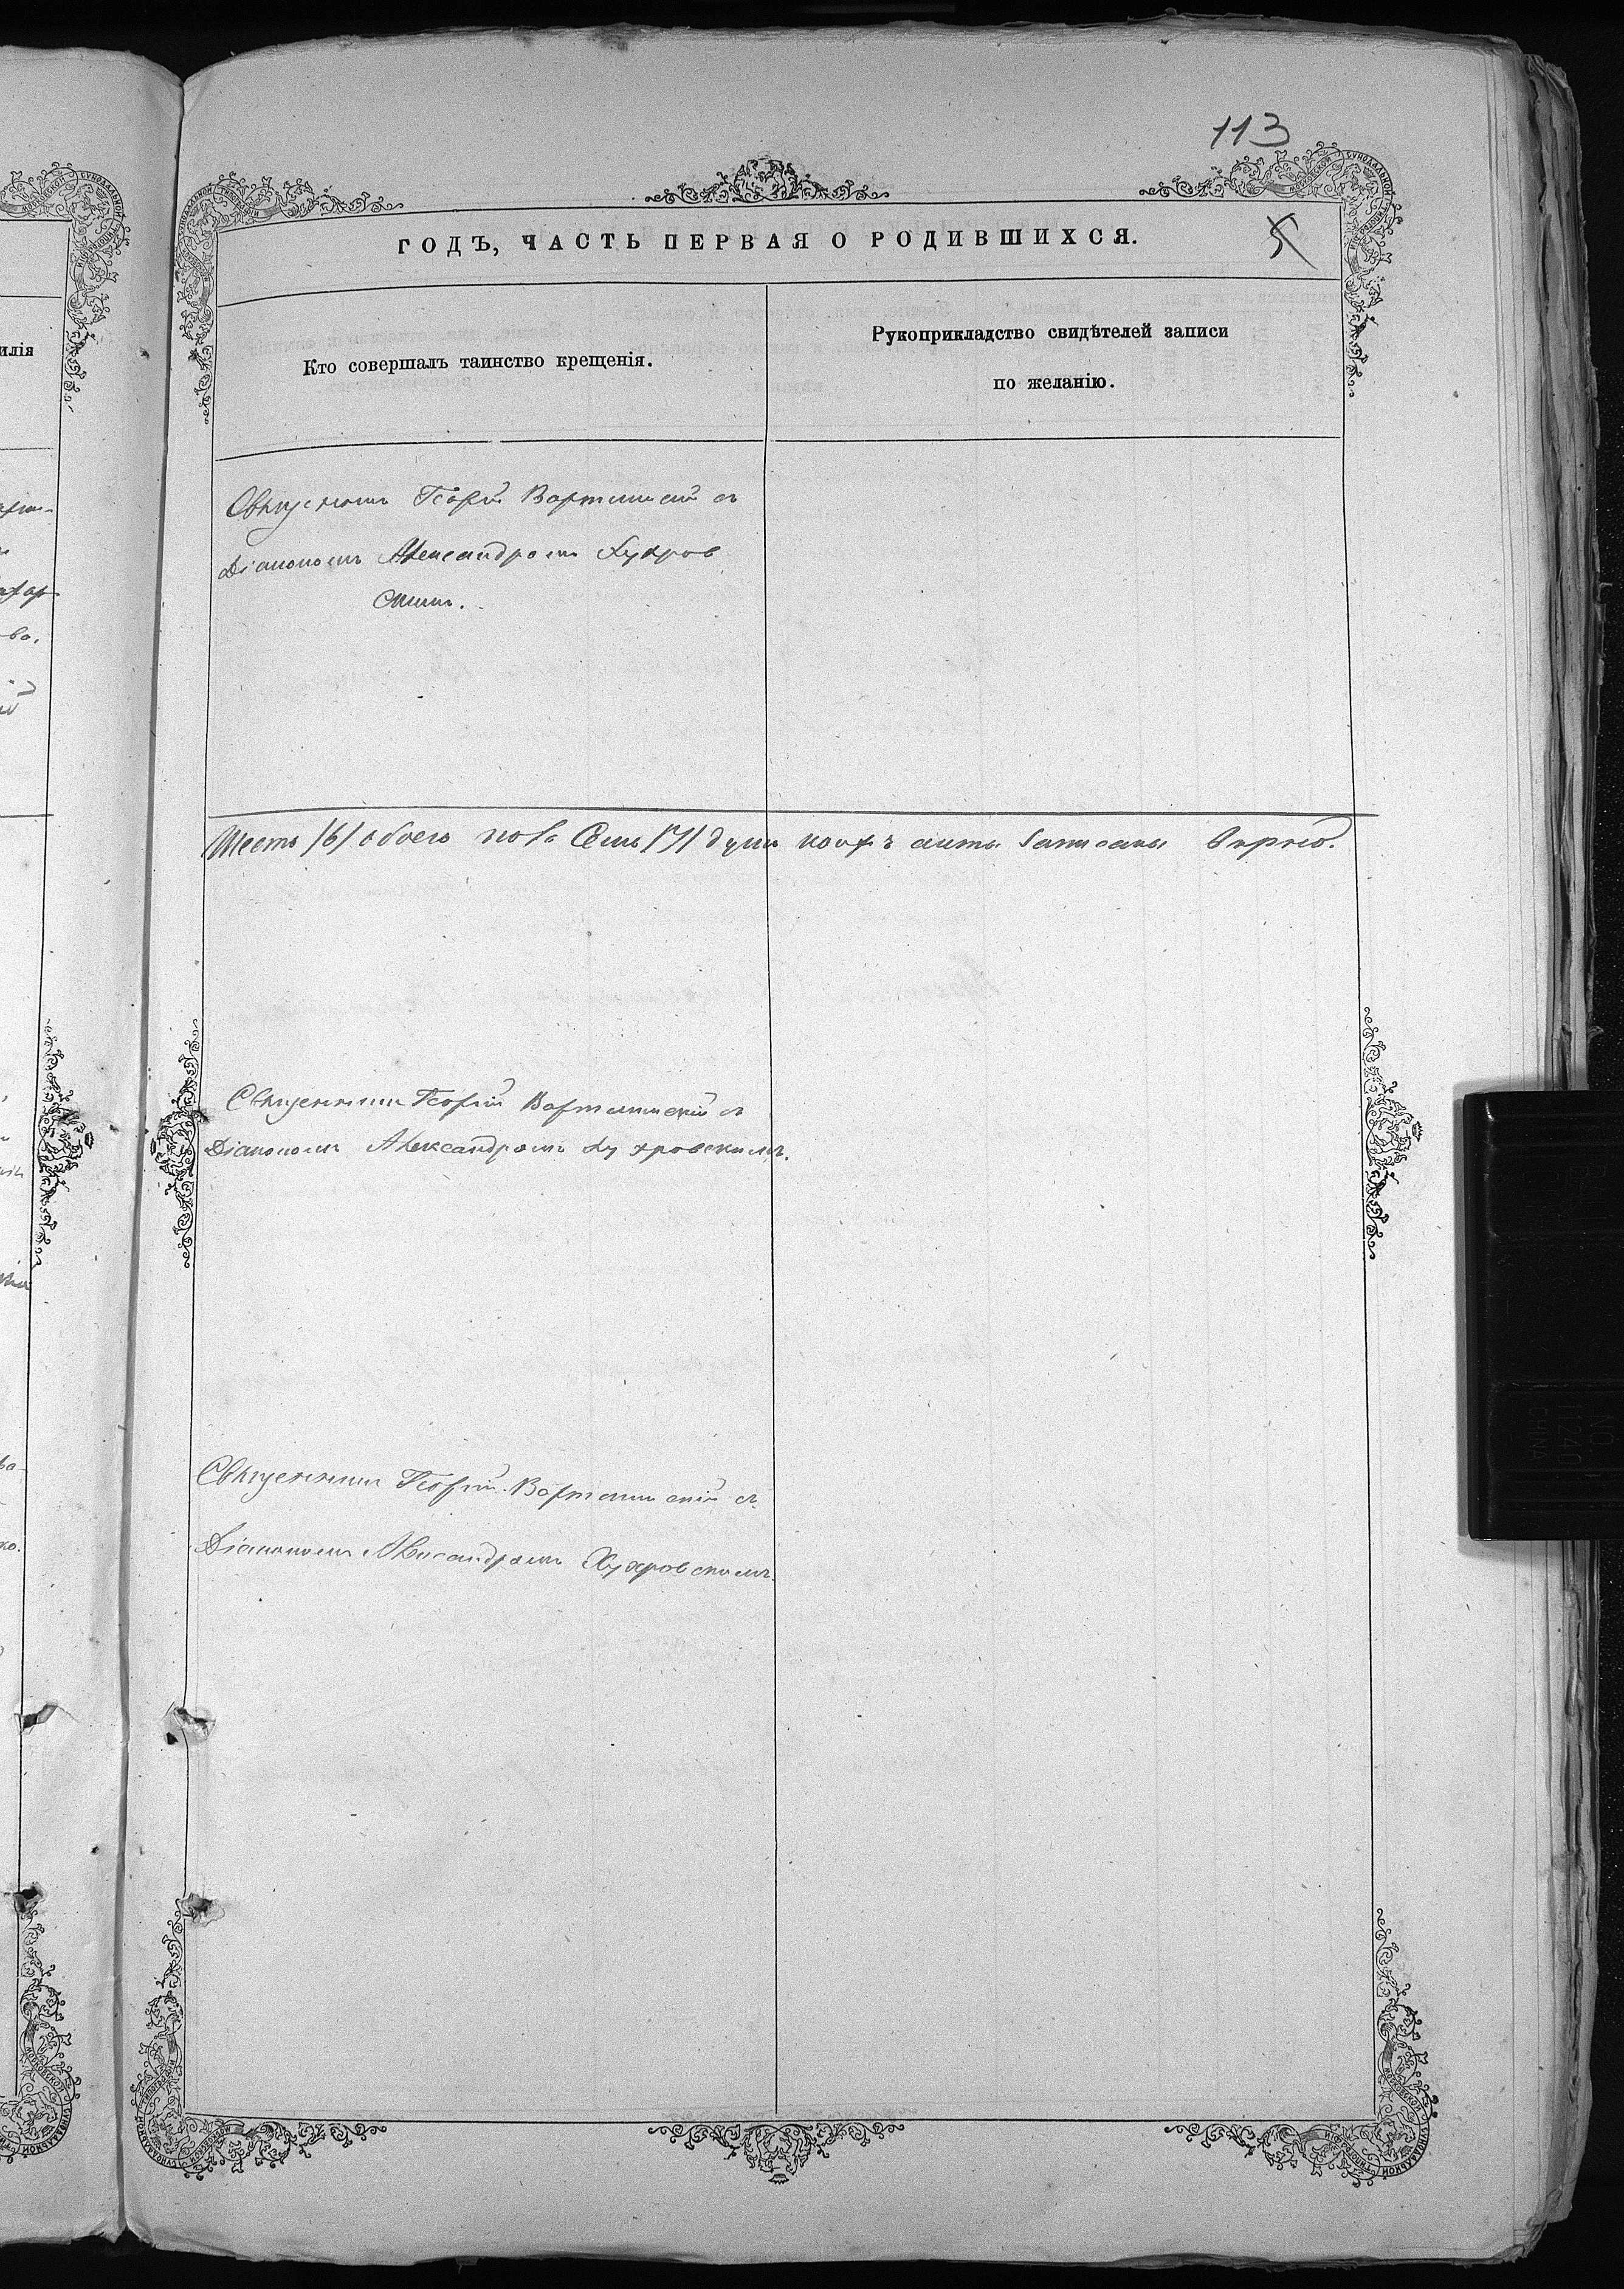 113
ГОДЪ, ЧАСТЬ ПЕРВАЯ О РОДИВШИХСЯ.
5
Кто совершалъ таинство крещенія.
Рукоприкладство свидѣтелей записи
по желанію.
Священникъ Георгій Вартминскій съ
Діакономъ Александромъ Хухров
скимъ.
Шесть /6/ обоего пола Семь /7/ душъ коихъ акты записаны вѣрно.
Священникъ Георгій Вартминскій съ
Діакономъ Александромъ Хухровскимъ.
Священникъ Георгій Вартминскій съ
Діакономъ Александромъ Хухровскимъ.